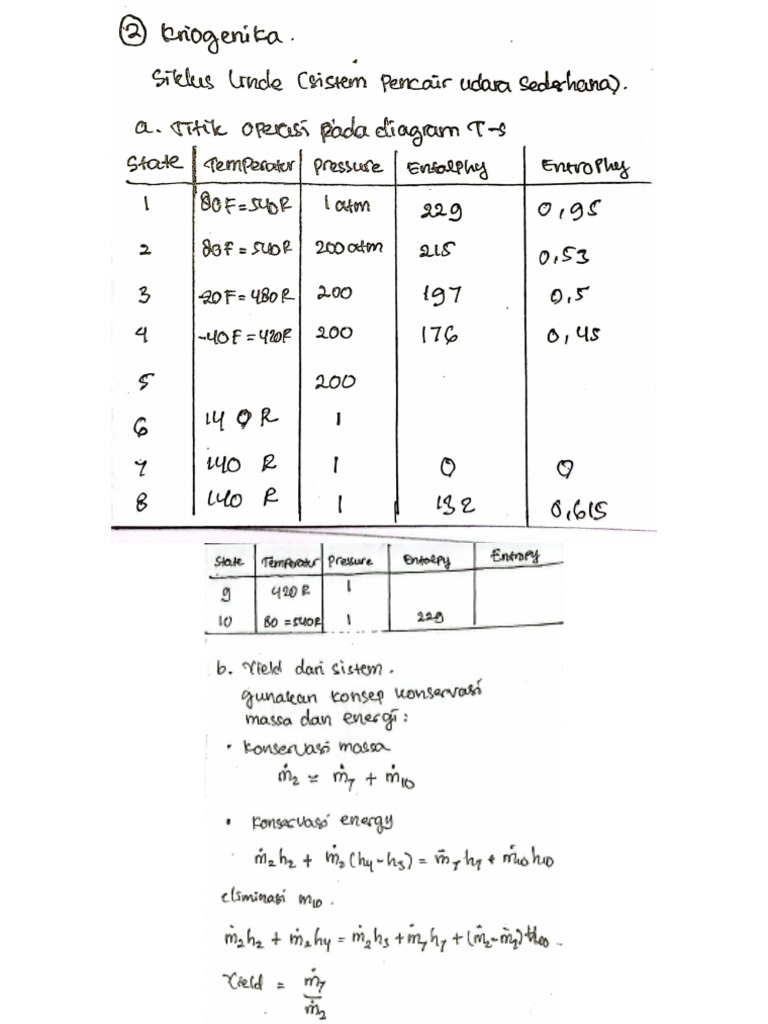 ② Kriogenika.
Siklus Linde (sistem pencair udara sederhana).
a. Titik operasi pada diagram T-s
State Temperatur Pressure Entalphy Entrophy
1 80F=540R 1 atm 229 0,95
2 80F=540R 200 atm 215 0,53
3 -20F=480R 200 197 0,5
4 -40F=420R 200 176 0,45
5 200
6 140R 1
7 140 R 1 0 0
8 140 R 1 132 0,615
State Temperatur Pressure Entalpy Entropy
9 420R 1
10 80=540R 1 229
b. Yield dari sistem.
gunakan konsep konservasi
massa dan energi:
• konservasi massa
ṁ2 = ṁ7 + ṁ10
• Konservasi energy
ṁ2h2 + ṁ2(h4-h3) = ṁ7h7 + ṁ10h10
eliminasi m10.
ṁ2h2 + ṁ2h4 = ṁ2h3 + ṁ7h7 + (ṁ2-ṁ7)h10.
Yield = ṁ7
ṁ2